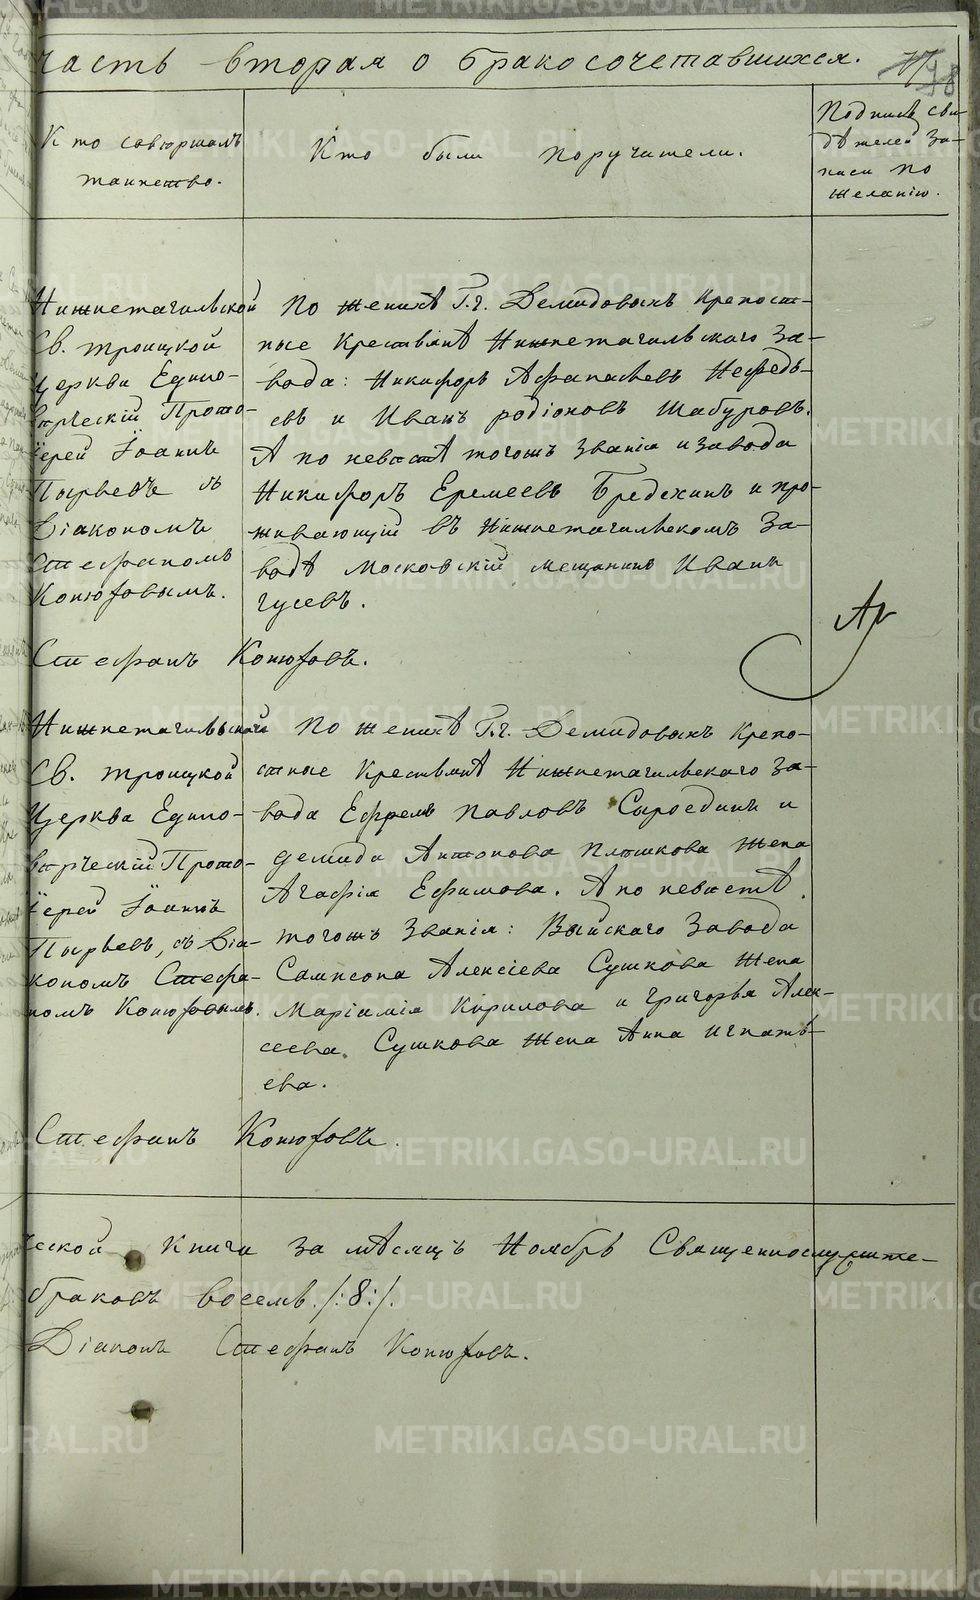 часть вторая о бракосочетавшихся.
Кто совершалъ
таинство.
Кто были поручители.
Подпись сви-
дѣтелей за-
писи по
желанію.
Нижнетагильской
Св. троицкой
Церкви Едино-
вѣрческій Прото-
іерей Іоаннъ
Пырьевъ съ
Діакономъ
Стефаномъ
Конюховымъ.
По женихѣ Г.г. Демидовыхъ крепост-
ные Крестьянѣ Нижнетагильскаго за-
вода: Никифоръ Афанасьевъ Нефедь-
евъ и Иванъ родіоновъ Шабуровъ.
А по невѣстѣ тогожъ званія и завода
Никифоръ Еремеевъ Бредехинъ и про-
живающій въ Нижнетагильскомъ за-
водѣ Московскій мещанинъ Иванъ
гусевъ.
Стефанъ Конюховъ.
Нижнетагильской
Св. троицкой
Церкви Едино-
вѣрческій Прото-
іерей Іоаннъ
Пырьевъ, съ Діа-
кономъ Стефа-
номъ Конюховымъ.
По женихѣ Г.г. Демидовыхъ Крепо-
стные Крестьянѣ Нижнетагильскаго за-
вода Ефремъ павловъ Сыроединъ и
демида Антонова Плѣшкова жена
Агафія Ефимова. А по невѣстѣ
тогожъ званія: Выйскаго завода
Сампсона Алексіева Сушкова жена
Маріамія Кирилова и григорья Алек-
сеева Сушкова жена Анна игнатъ-
ева.
Стефанъ Конюховъ.
ческой книги за мѣсяцъ Ноябрь Священнослужите-
браковъ восемь /:8:/.
Діаконъ Стефанъ Конюховъ.
METRIKI.GASO-URAL.RU